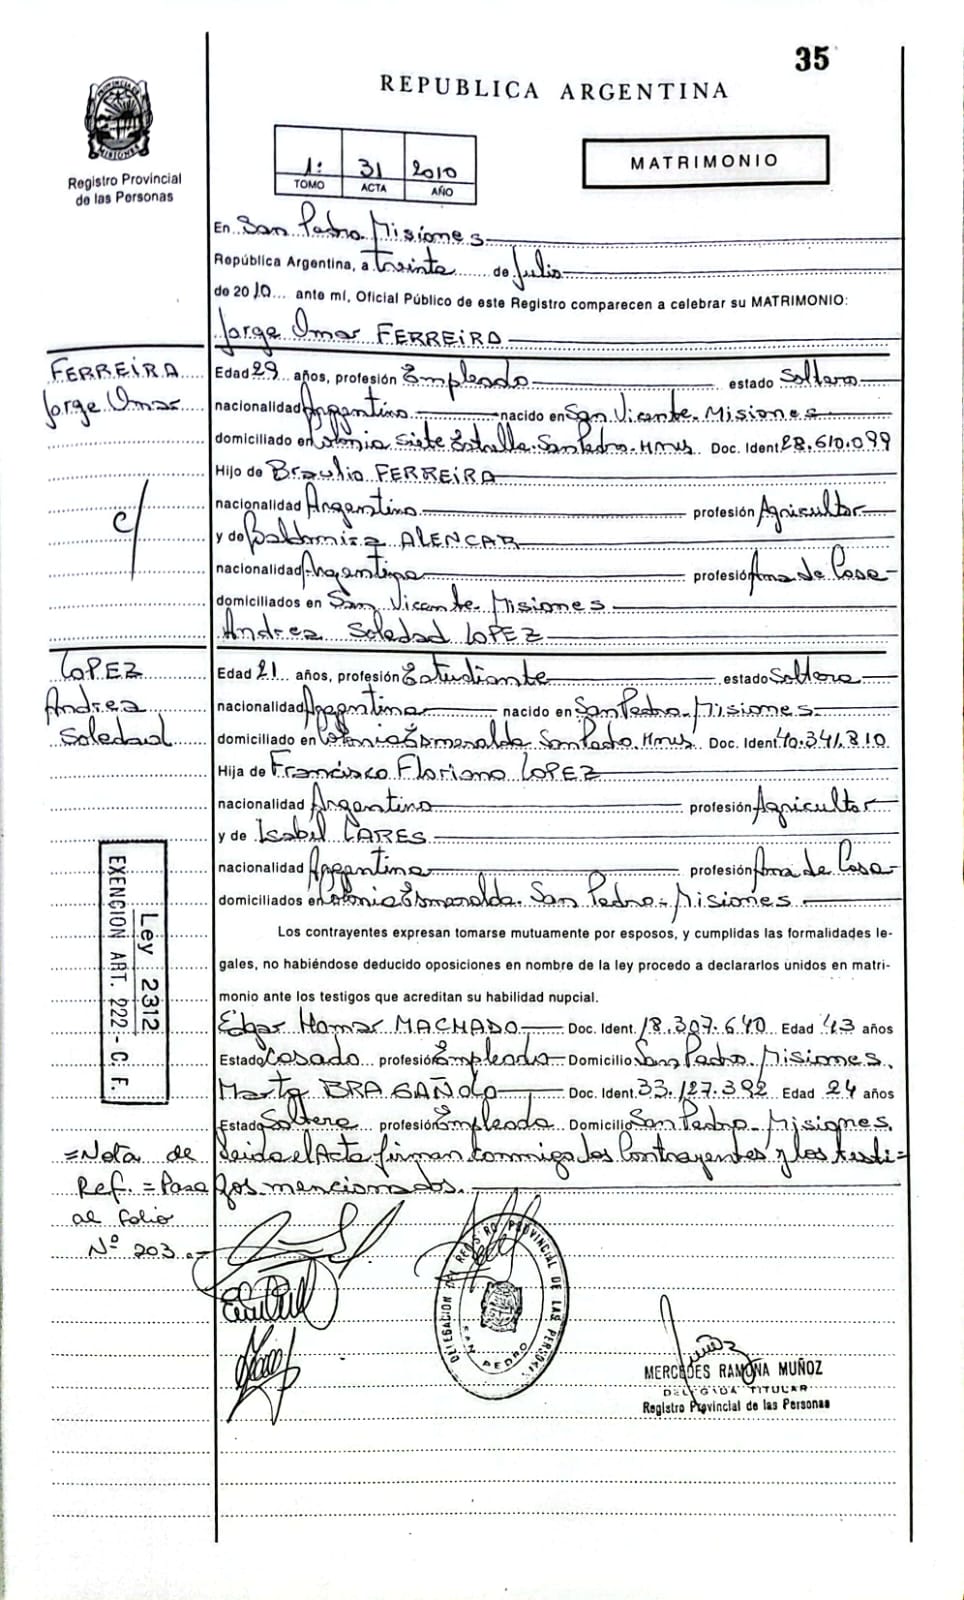 35
REPUBLICA ARGENTINA
PROVINCIA DE MISIONES
Registro Provincial
de las Personas
1: 31 2010
TOMO ACTA AÑO
MATRIMONIO
En San Pedro. Misiones
República Argentina, a Treinta de Julio
de 2010 ante mí, Oficial Público de este Registro comparecen a celebrar su MATRIMONIO:
Jorge Omar FERREIRA
FERREIRA
Jorge Omar
Edad 29 años, profesión Empleado estado Soltero
nacionalidad Argentino nacido en San Vicente. Misiones
domiciliado en Colonia Siete Estrella. San Pedro. Mnes Doc. Ident. 28.610.099
Hijo de Braulio FERREIRA
nacionalidad Argentino profesión Agricultor
c/
y de Baldomira ALENCAR
nacionalidad Argentina profesión Ama de Casa
domiciliados en San Vicente. Misiones
Andrea Soledad LOPEZ
LOPEZ
Andrea
Soledad
Edad 21 años, profesión Estudiante estado Soltera
nacionalidad Argentina nacido en San Pedro. Misiones
domiciliado en Colonia Esmeralda San Pedro. Mnes Doc. Ident. 40.341.810
Hija de Francisco Floriano LOPEZ
nacionalidad Argentino profesión Agricultor
y de Isabel CARES
nacionalidad Argentina profesión Ama de Casa
domiciliados en Colonia Esmeralda. San Pedro. Misiones
Ley 2312
EXENCION ART. 222 - C. F.
Los contrayentes expresan tomarse mutuamente por esposos, y cumplidas las formalidades le-
gales, no habiéndose deducido oposiciones en nombre de la ley procedo a declararlos unidos en matri-
monio ante los testigos que acreditan su habilidad nupcial.
Edgar Homar MACHADO Doc. Ident. 18.307.640 Edad 43 años
Estado Casado profesión Empleado Domicilio San Pedro. Misiones.
Marta BRAGAÑOLO Doc. Ident. 33.127.392 Edad 24 años
Estado Soltera profesión Empleada Domicilio San Pedro. Misiones.
Leida el Acta firman conmigo los Contrayentes y los testi=
gos mencionados.
=Nota de
Ref. = Pase
al folio
Nº 203.=
DELEGACION DEL REGISTRO PROVINCIAL DE LAS PERSONAS
SAN PEDRO
MERCEDES RAMONA MUÑOZ
DELEGADA TITULAR
Registro Provincial de las Personas